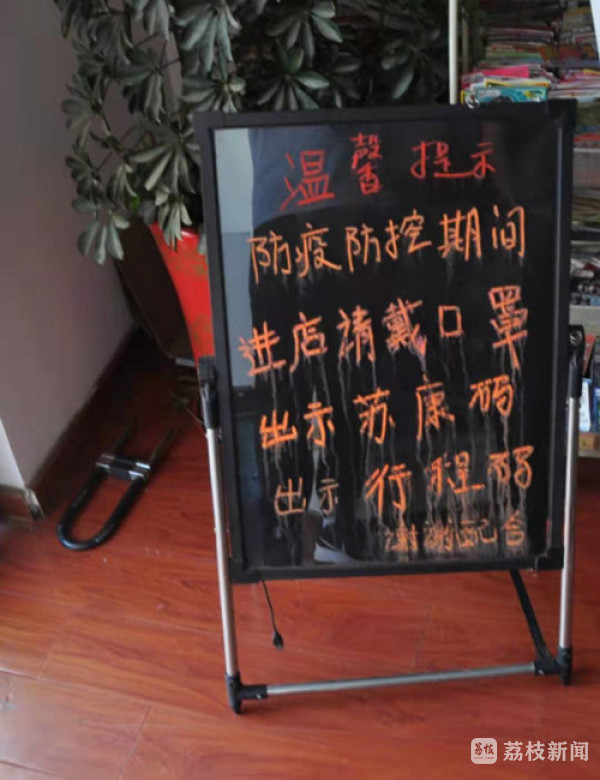 温馨提示
防疫防控期间
进店请戴口罩
出示苏康码
出示行程码
谢谢配合
荔枝 荔枝新闻